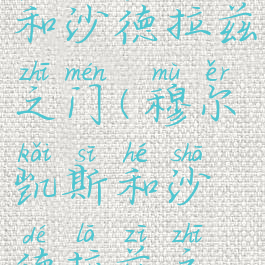 和沙德拉兹
zhī mén mù ěr
之门(穆尔
kǎi sī hé shā
凯斯和沙
dé lā zī zhī
德拉兹之